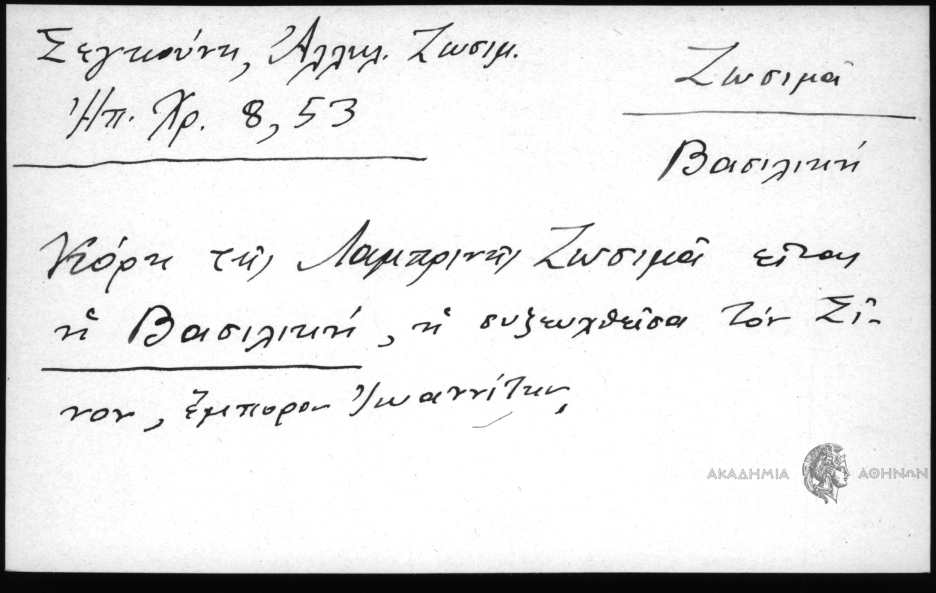 Σεγκούνη, Ἀλληλ. Ζωσιμ.
Ἠπ. Χρ. 8, 53
Ζωσιμᾶ
Βασιλική
Κόρη τῆς Λαμπρινῆς Ζωσιμᾶ εἶναι
ἡ Βασιλική, ἡ συζευχθεῖσα τόν Σῖ-
νον, ἔμπορον Ἰωαννίτην,
ΑΚΑΔΗΜΙΑ ΑΘΗΝΩΝ